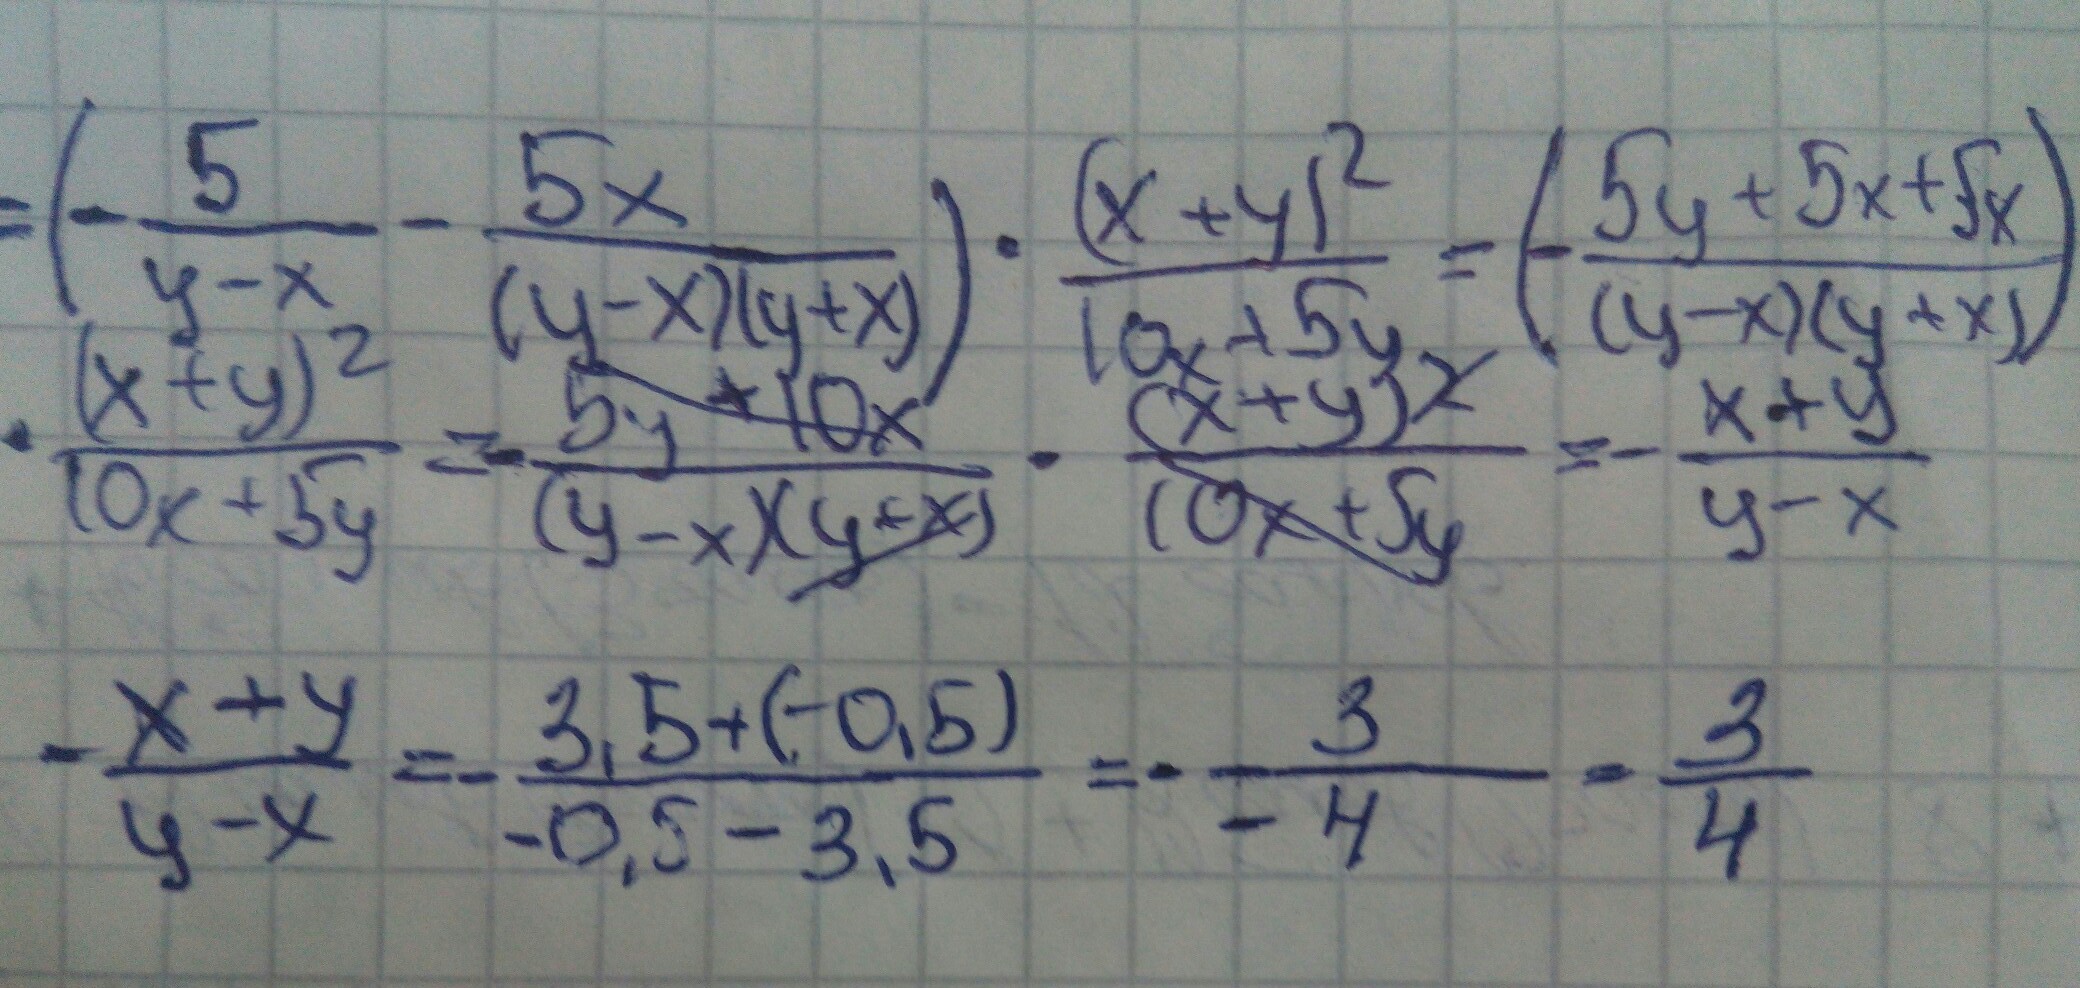 = (- 5/(y-x) - 5x/((y-x)(y+x))) · (x+y)²/(10x+5y) = (- (5y+5x+5x)/((y-x)(y+x)))
· (x+y)²/(10x+5y) = - (5y+10x)/((y-x)(y+x)) · (x+y)²/(10x+5y) = - (x+y)/(y-x)
- (x+y)/(y-x) = - (3,5+(-0,5))/(-0,5-3,5) = - 3/(-4) = 3/4